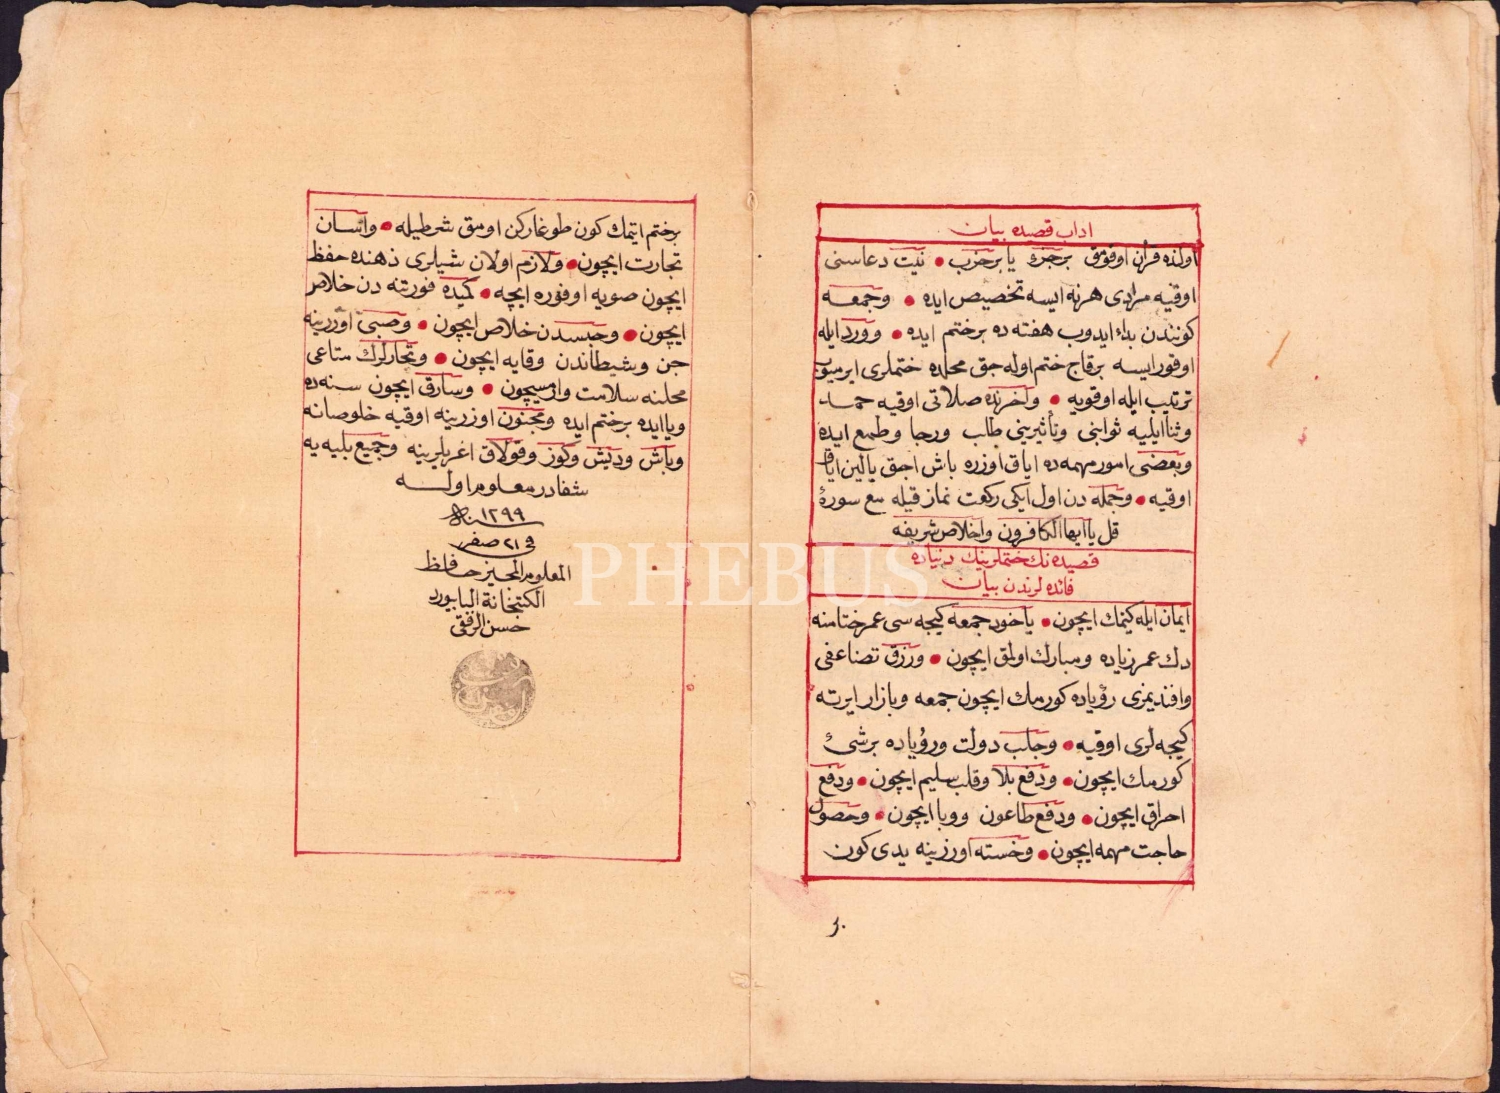 اداب قصيده بيان
اولنده قرأن اوقومق برجزء يا برحزب • نيت دعاسنى
اوقيه مرادى هر نه ايسه تخصيص ايده • وجمعه
كونندن بدء ايدوب هفته ده بر ختم ايده • وورد ايله
اوقور ايسه برقاج ختم اوله جق محلده ختملرى ايرميوب
ترتيب ايله اوقويه • واخرنده صلاتى اوقيه حمد
وثنا ايليه ثوابنى وتأثيرينى طالب ورجا وطمع ايده
وبعضى امور مهمه ده اياق اوزره باش اجق يالين اياق
اوقيه • وجمله دن اول ايكى ركعت نماز قيله مع سورۀ
قل يا ايها الكافرون واخلاص شريفه
قصيده نك ختملرينك دنياده
فائده لرندن بيان
ايمان ايله كيتمك ايچون • ياخود جمعه كيجه سى عمر ختامنه
دك عمر زياده ومبارك اولمق ايچون • ورزق تضاعفى
وافنديمزى رؤياده كورمك ايچون جمعه وبازار ايرته
كيجه لرى اوقيه • وجلب دولت ورؤياده برشئ
كورمك ايچون • ودفع بلا وقلب سليم ايچون • ودفع
احراق ايچون • ودفع طاعون ووبا ايچون • وحصول
حاجت مهمه ايچون • وخسته اوزرينه يدى كون
بر
برختم ايتمك كون طوغاركن اومق شرطيله • واسان
تجارت ايچون • ولازم اولان شيلرى ذهنده حفظ
ايچون صويه اوقوره ايچه • كميده فورتنه دن خلاص
ايچون • وحبسدن خلاص ايچون • وصبى اوزرينه
جن وشيطاندن وقايه ايچون • وتجارلرك متاعى
محلنه سلامت وارمسيچون • وسارق ايچون سنه ده
ويا ايده برختم ايده ومجنون اوزرينه اوقيه خلوصانه
وباش وديش وكوز وقولاق اغريلرينه وجميع بليه يه
شفادر معلوم اوله
سنه ١٢٩٩
فى ٢١ صفر
المعلوم المجيز حافظ
الكتبخانة البابيورد
حسن الرفقى
PHEBUS